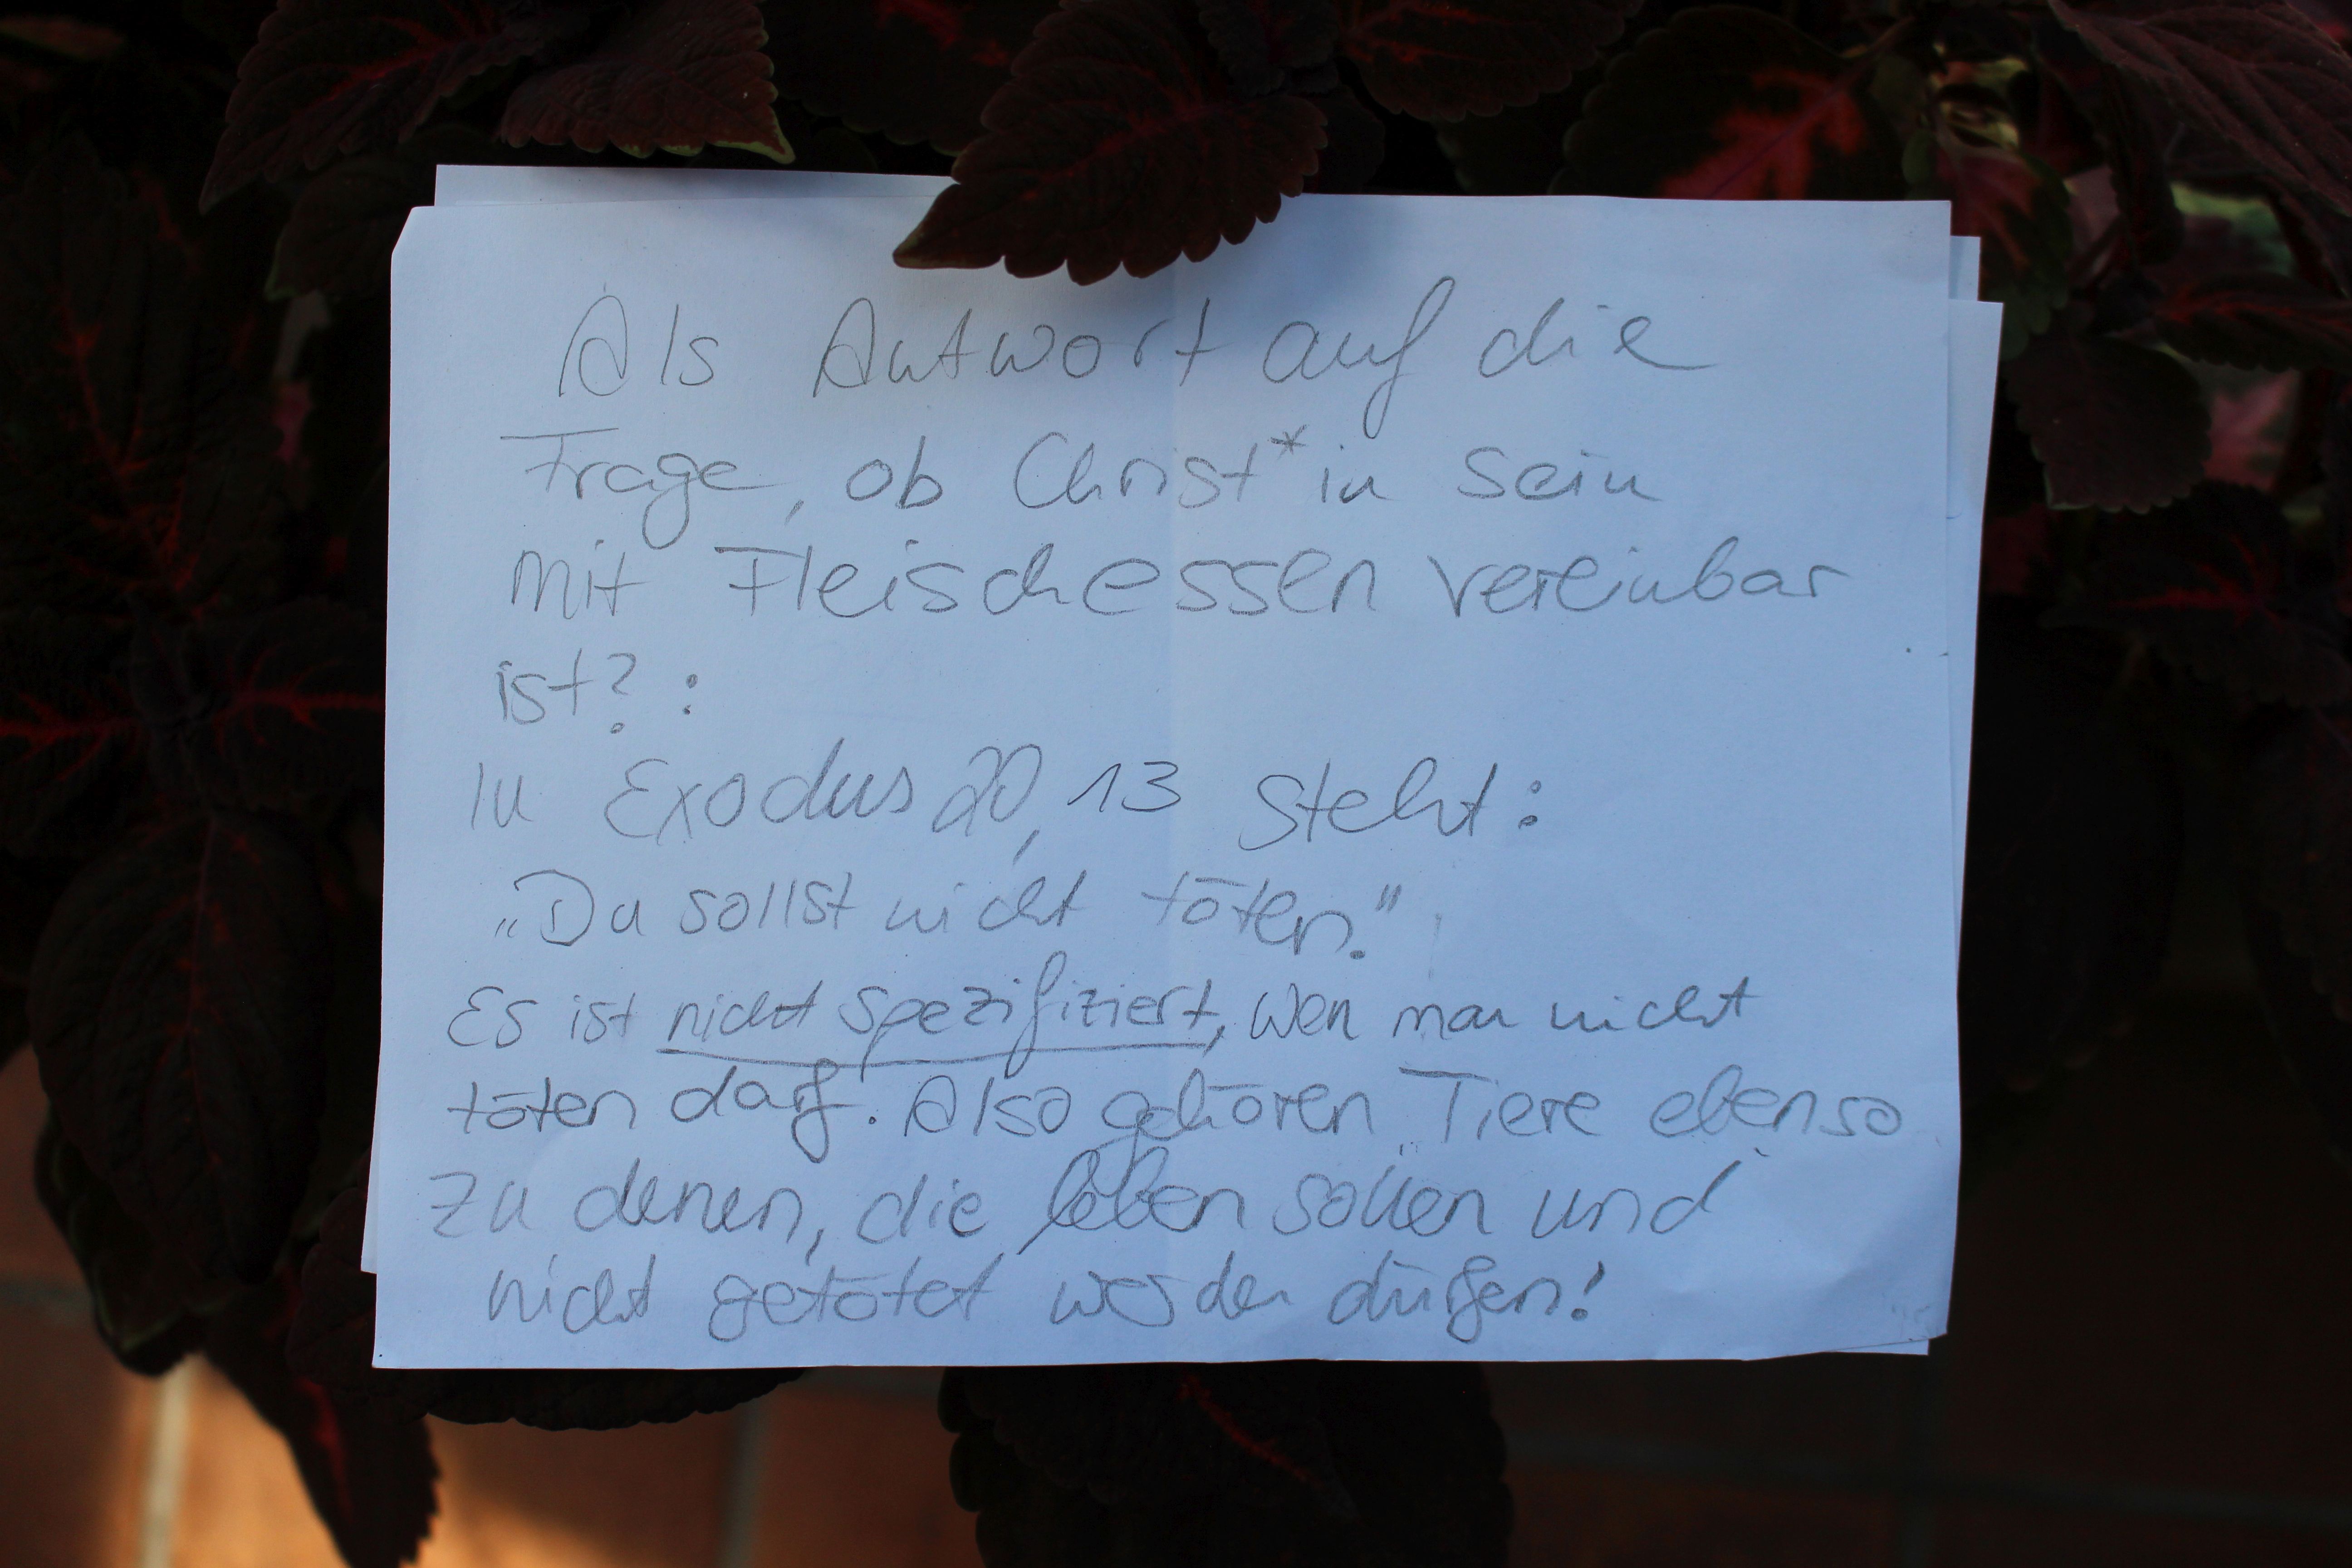 Als Antwort auf die
Frage, ob Christ*in sein
mit Fleischessen vereinbar
ist? :
In Exodus 20, 13 steht:
„Du sollst nicht töten."
Es ist nicht spezifiziert, wen man nicht
töten darf. Also gehören Tiere ebenso
zu denen, die leben sollen und
nicht getötet werden dürfen!